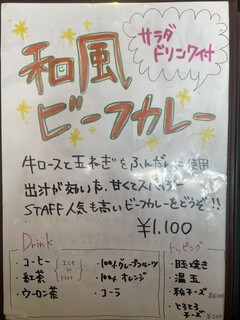 サラダ
ドリンク付
和風
ビーフカレー
牛ロースと玉ねぎをふんだんに使用
出汁が効いた、甘くてスパイシー
STAFF人気も高いビーフカレーをどうぞ!!
¥1,100
Drink
・コーヒー
・紅茶
・ウーロン茶
Ice
or
Hot
・100%グレープフルーツ
・100%オレンジ
・コーラ
トッピング
・豚焼き
・温玉
・粉チーズ
・とろとろ
チーズ